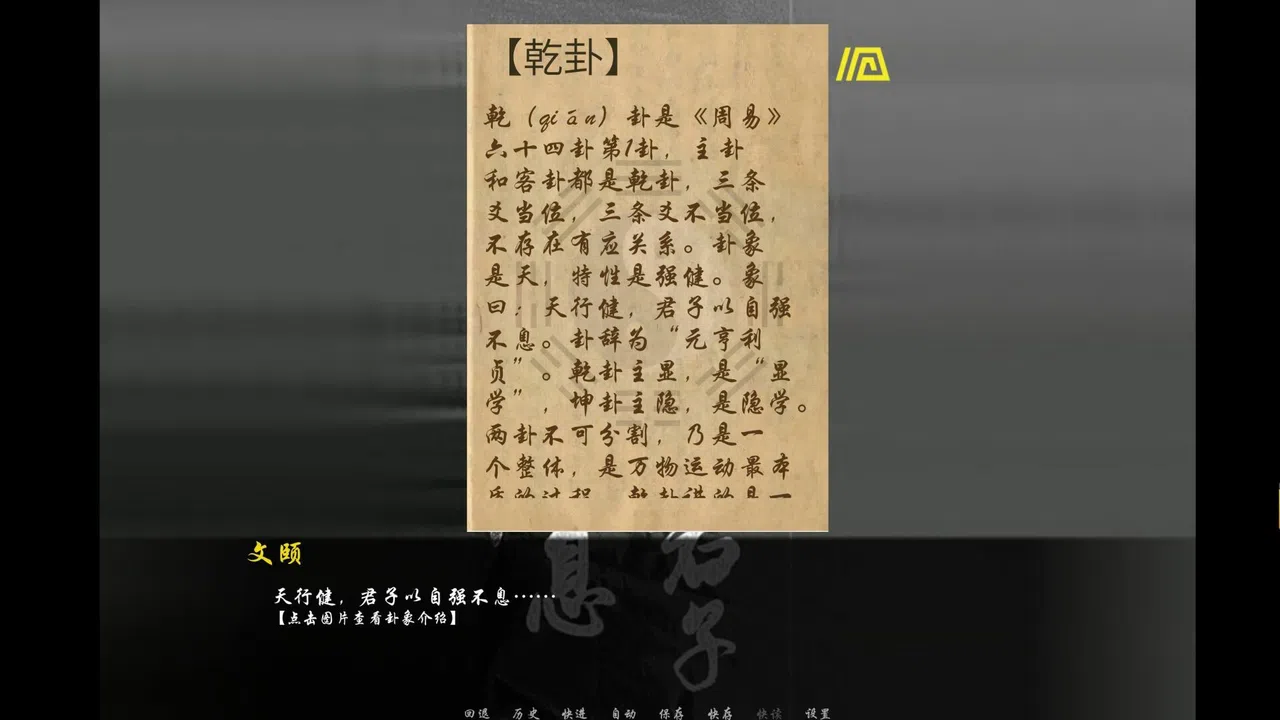 【乾卦】
乾（qiān）卦是《周易》
六十四卦第1卦，主卦
和客卦都是乾卦，三条
爻当位，三条爻不当位，
不存在有应关系。卦象
是天，特性是强健。象
曰：天行健，君子以自强
不息。卦辞为“元亨利
贞”。乾卦主显，是“显
学”，坤卦主隐，是隐学。
两卦不可分割，乃是一
个整体，是万物运动最本
质的过程，乾卦讲的是一
息
君子
文颐
天行健，君子以自强不息……
【点击图片查看卦象介绍】
回退 历史 快进 自动 保存 快存 快读 设置